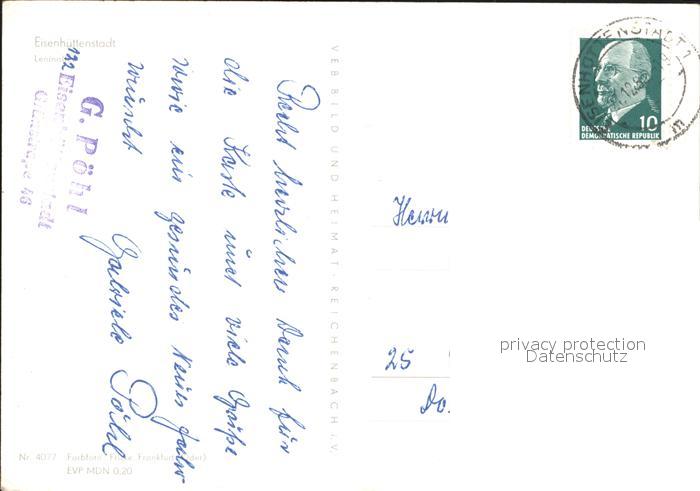 Eisenhüttenstadt
Recht herzlichen Dank für
die Karte und viele Grüße
sowie ein gesundes Neues Jahr
wünscht
Gabriele Pöhl
G. Pöhl
122 Eisenhüttenstadt
46
VEB BILD UND HEIMAT · REICHENBACH i. V.
Nr. 4077
Frankfurt (Oder)
EVP MDN 0,20
EISENHÜTTENSTADT 2
10
DEUTSCHE
DEMOKRATISCHE REPUBLIK
Herrn
25
Do.
privacy protection
Datenschutz